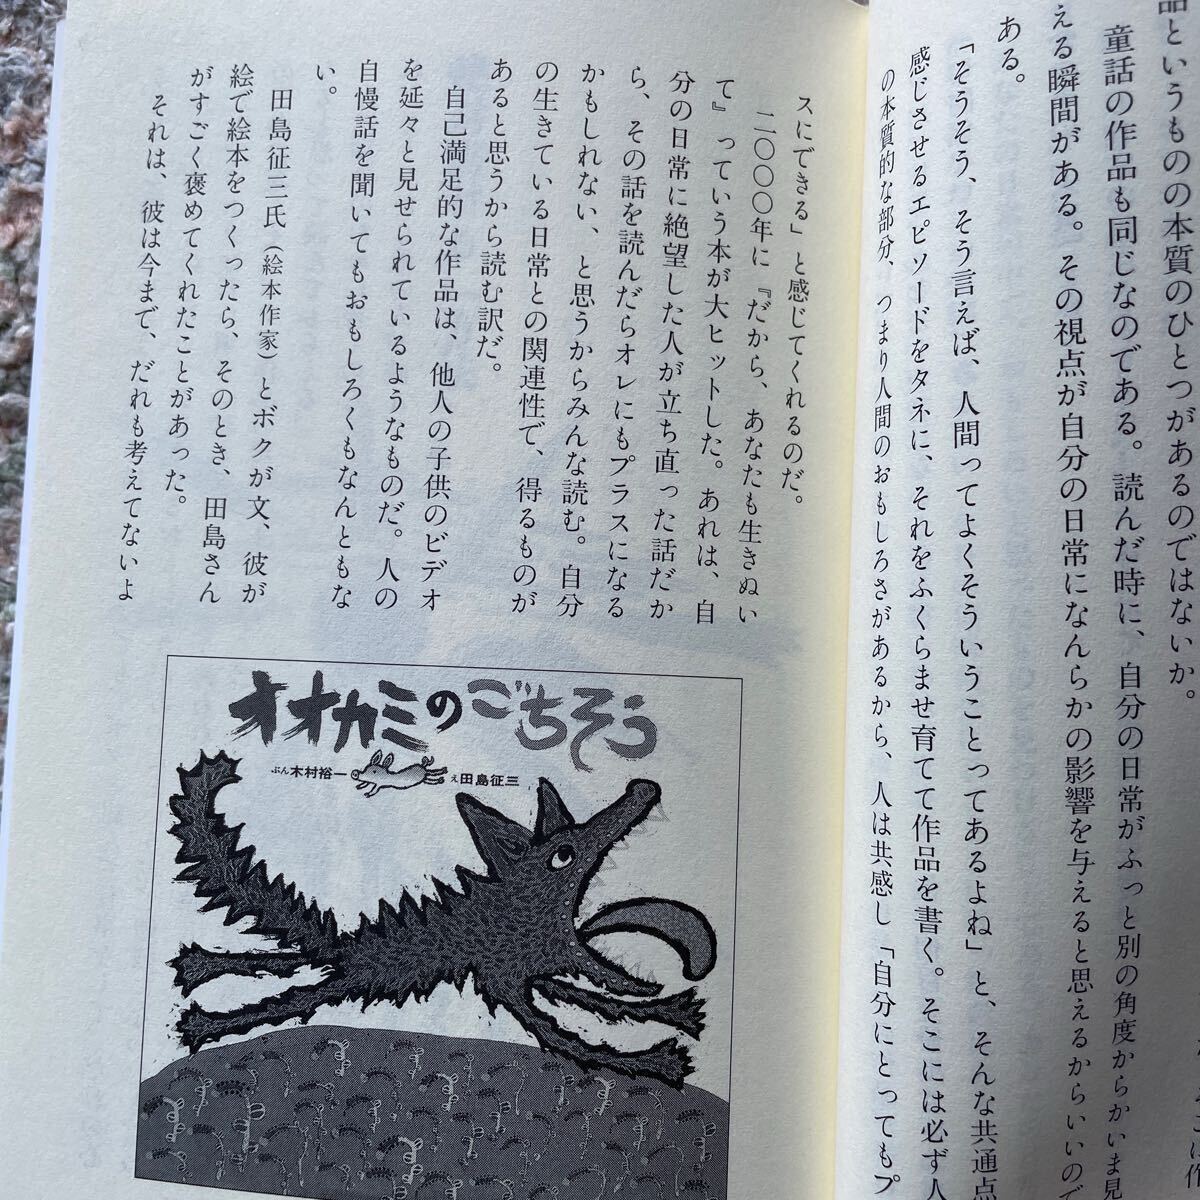 話というものの本質のひとつがあるのではないか。
童話の作品も同じなのである。読んだ時に、自分の日常がふっと別の角度からかいま見
える瞬間がある。その視点が自分の日常になんらかの影響を与えると思えるからいいので
ある。
「そうそう、そう言えば、人間ってよくそういうことってあるよね」と、そんな共通点
感じさせるエピソードをタネに、それをふくらませ育てて作品を書く。そこには必ず人
の本質的な部分、つまり人間のおもしろさがあるから、人は共感し「自分にとってもプ
スにできる」と感じてくれるのだ。
二〇〇〇年に『だから、あなたも生きぬい
て』っていう本が大ヒットした。あれは、自
分の日常に絶望した人が立ち直った話だか
ら、その話を読んだらオレにもプラスになる
かもしれない、と思うからみんな読む。自分
の生きている日常との関連性で、得るものが
あると思うから読む訳だ。
自己満足的な作品は、他人の子供のビデオ
を延々と見せられているようなものだ。人の
自慢話を聞いてもおもしろくもなんともな
い。
田島征三氏（絵本作家）とボクが文、彼が
絵で絵本をつくったら、そのとき、田島さん
がすごく褒めてくれたことがあった。
それは、彼は今まで、だれも考えてないよ
オオカミのごちそう
ぶん木村裕一
え田島征三